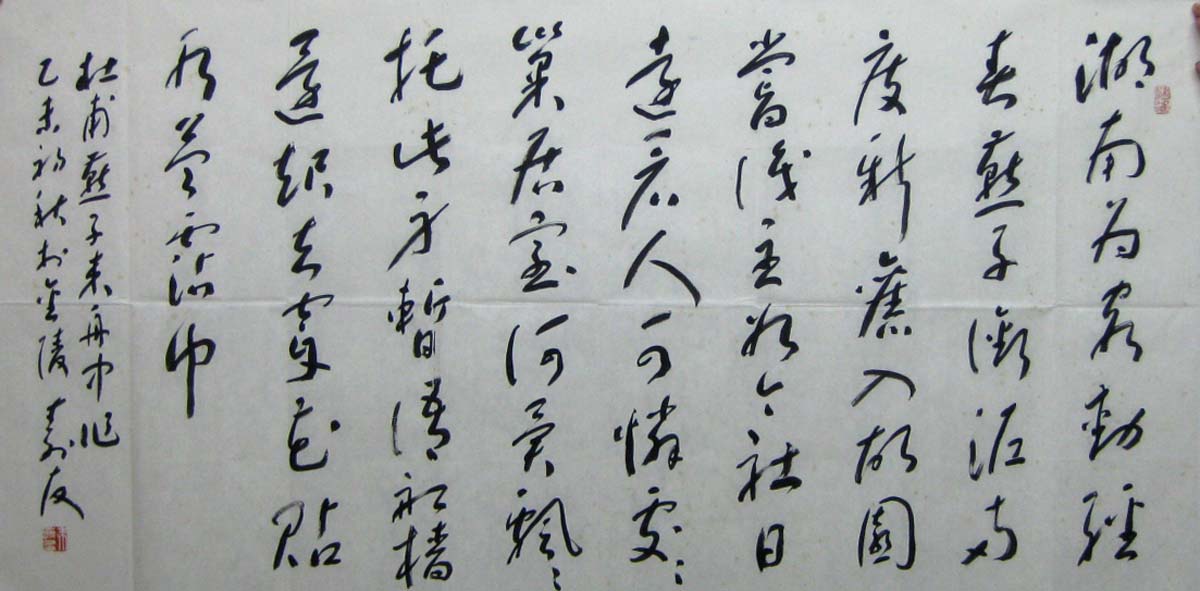 湖南为客動經
春燕子銜泥兩
度新舊入故園
嘗識主如今社日
遠看人可憐處々
巢居室何異飄々
托此身暫語船檣
還起去穿花貼
水益霑巾
杜甫燕子来舟中作
乙未初秋於金陵